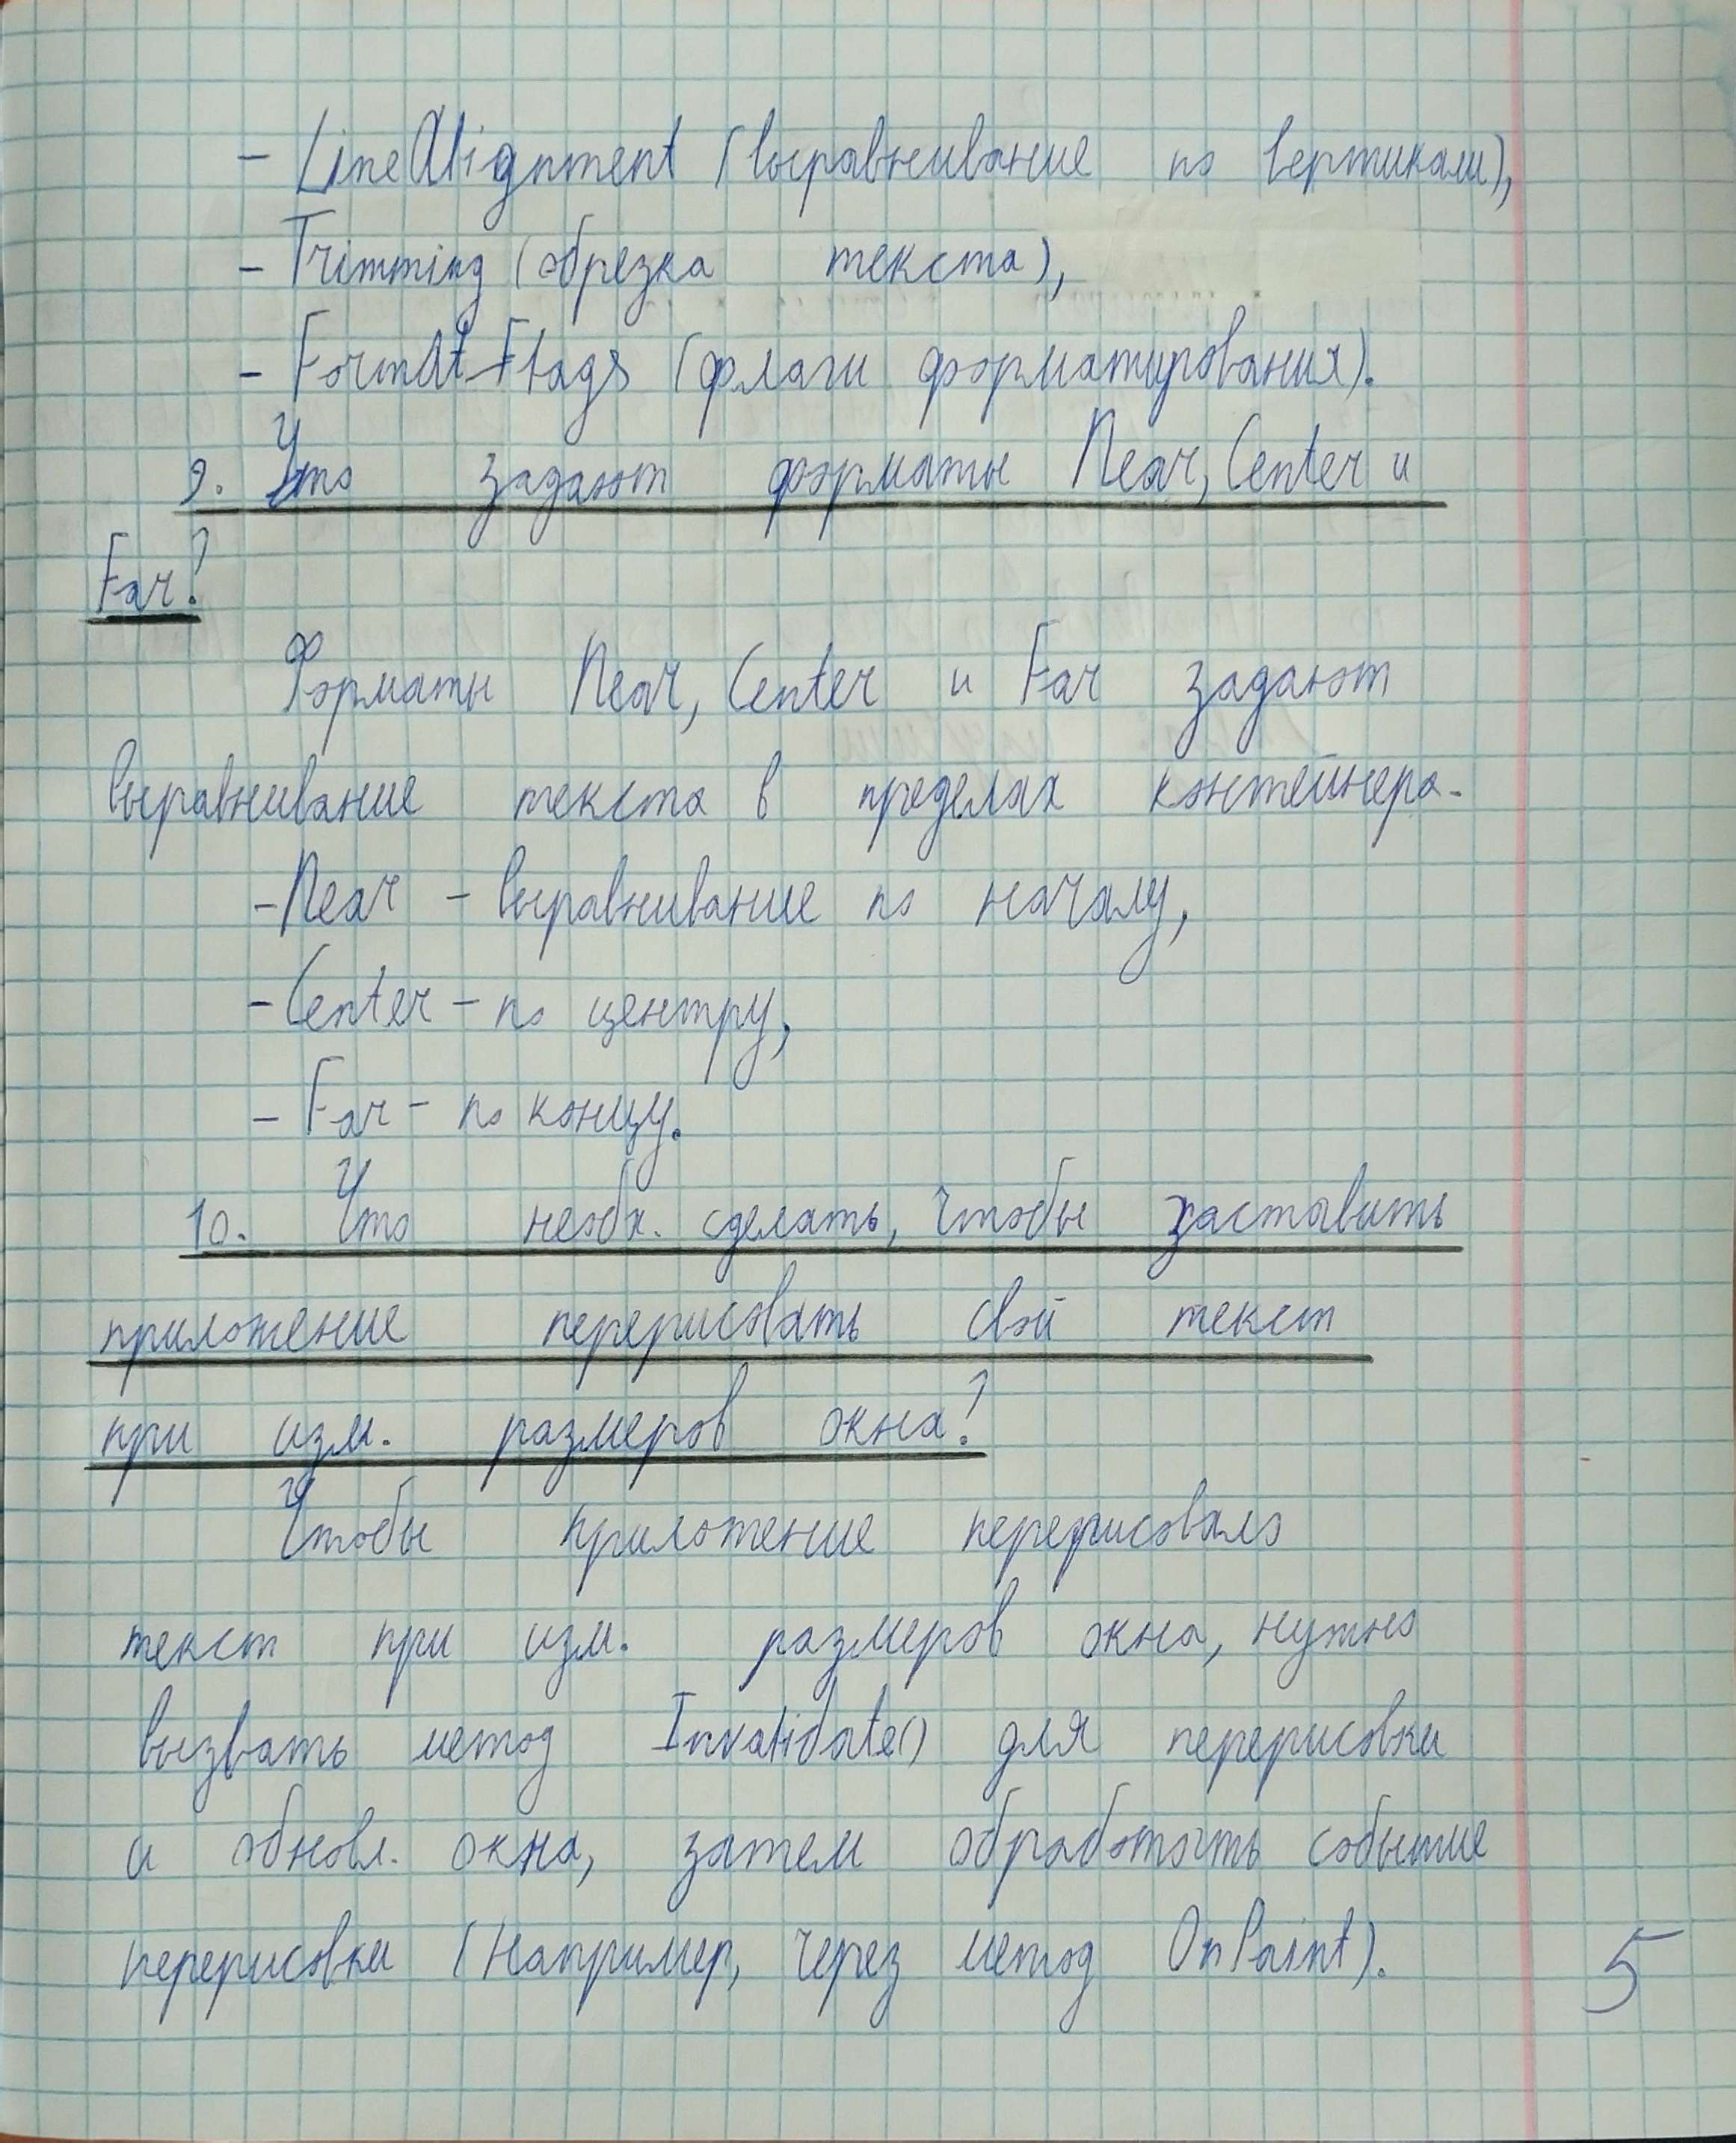 - LineAlignment (выравнивание по вертикали),
- Trimming (обрезка текста),
- FormatFlags (флаги форматирования).
9. Что задают форматы Near, Center и
Far?
Форматы Near, Center и Far задают
выравнивание текста в пределах контейнера.
- Near - выравнивание по началу,
- Center - по центру,
- Far - по концу.
10. Что необх. сделать, чтобы заставить
приложение перерисовать свой текст
при изм. размеров окна?
Чтобы приложение перерисовало
текст при изм. размеров окна, нужно
вызвать метод Invalidate() для перерисовки
и обновл. окна, затем обработать событие
перерисовки (Например, через метод OnPaint).
5